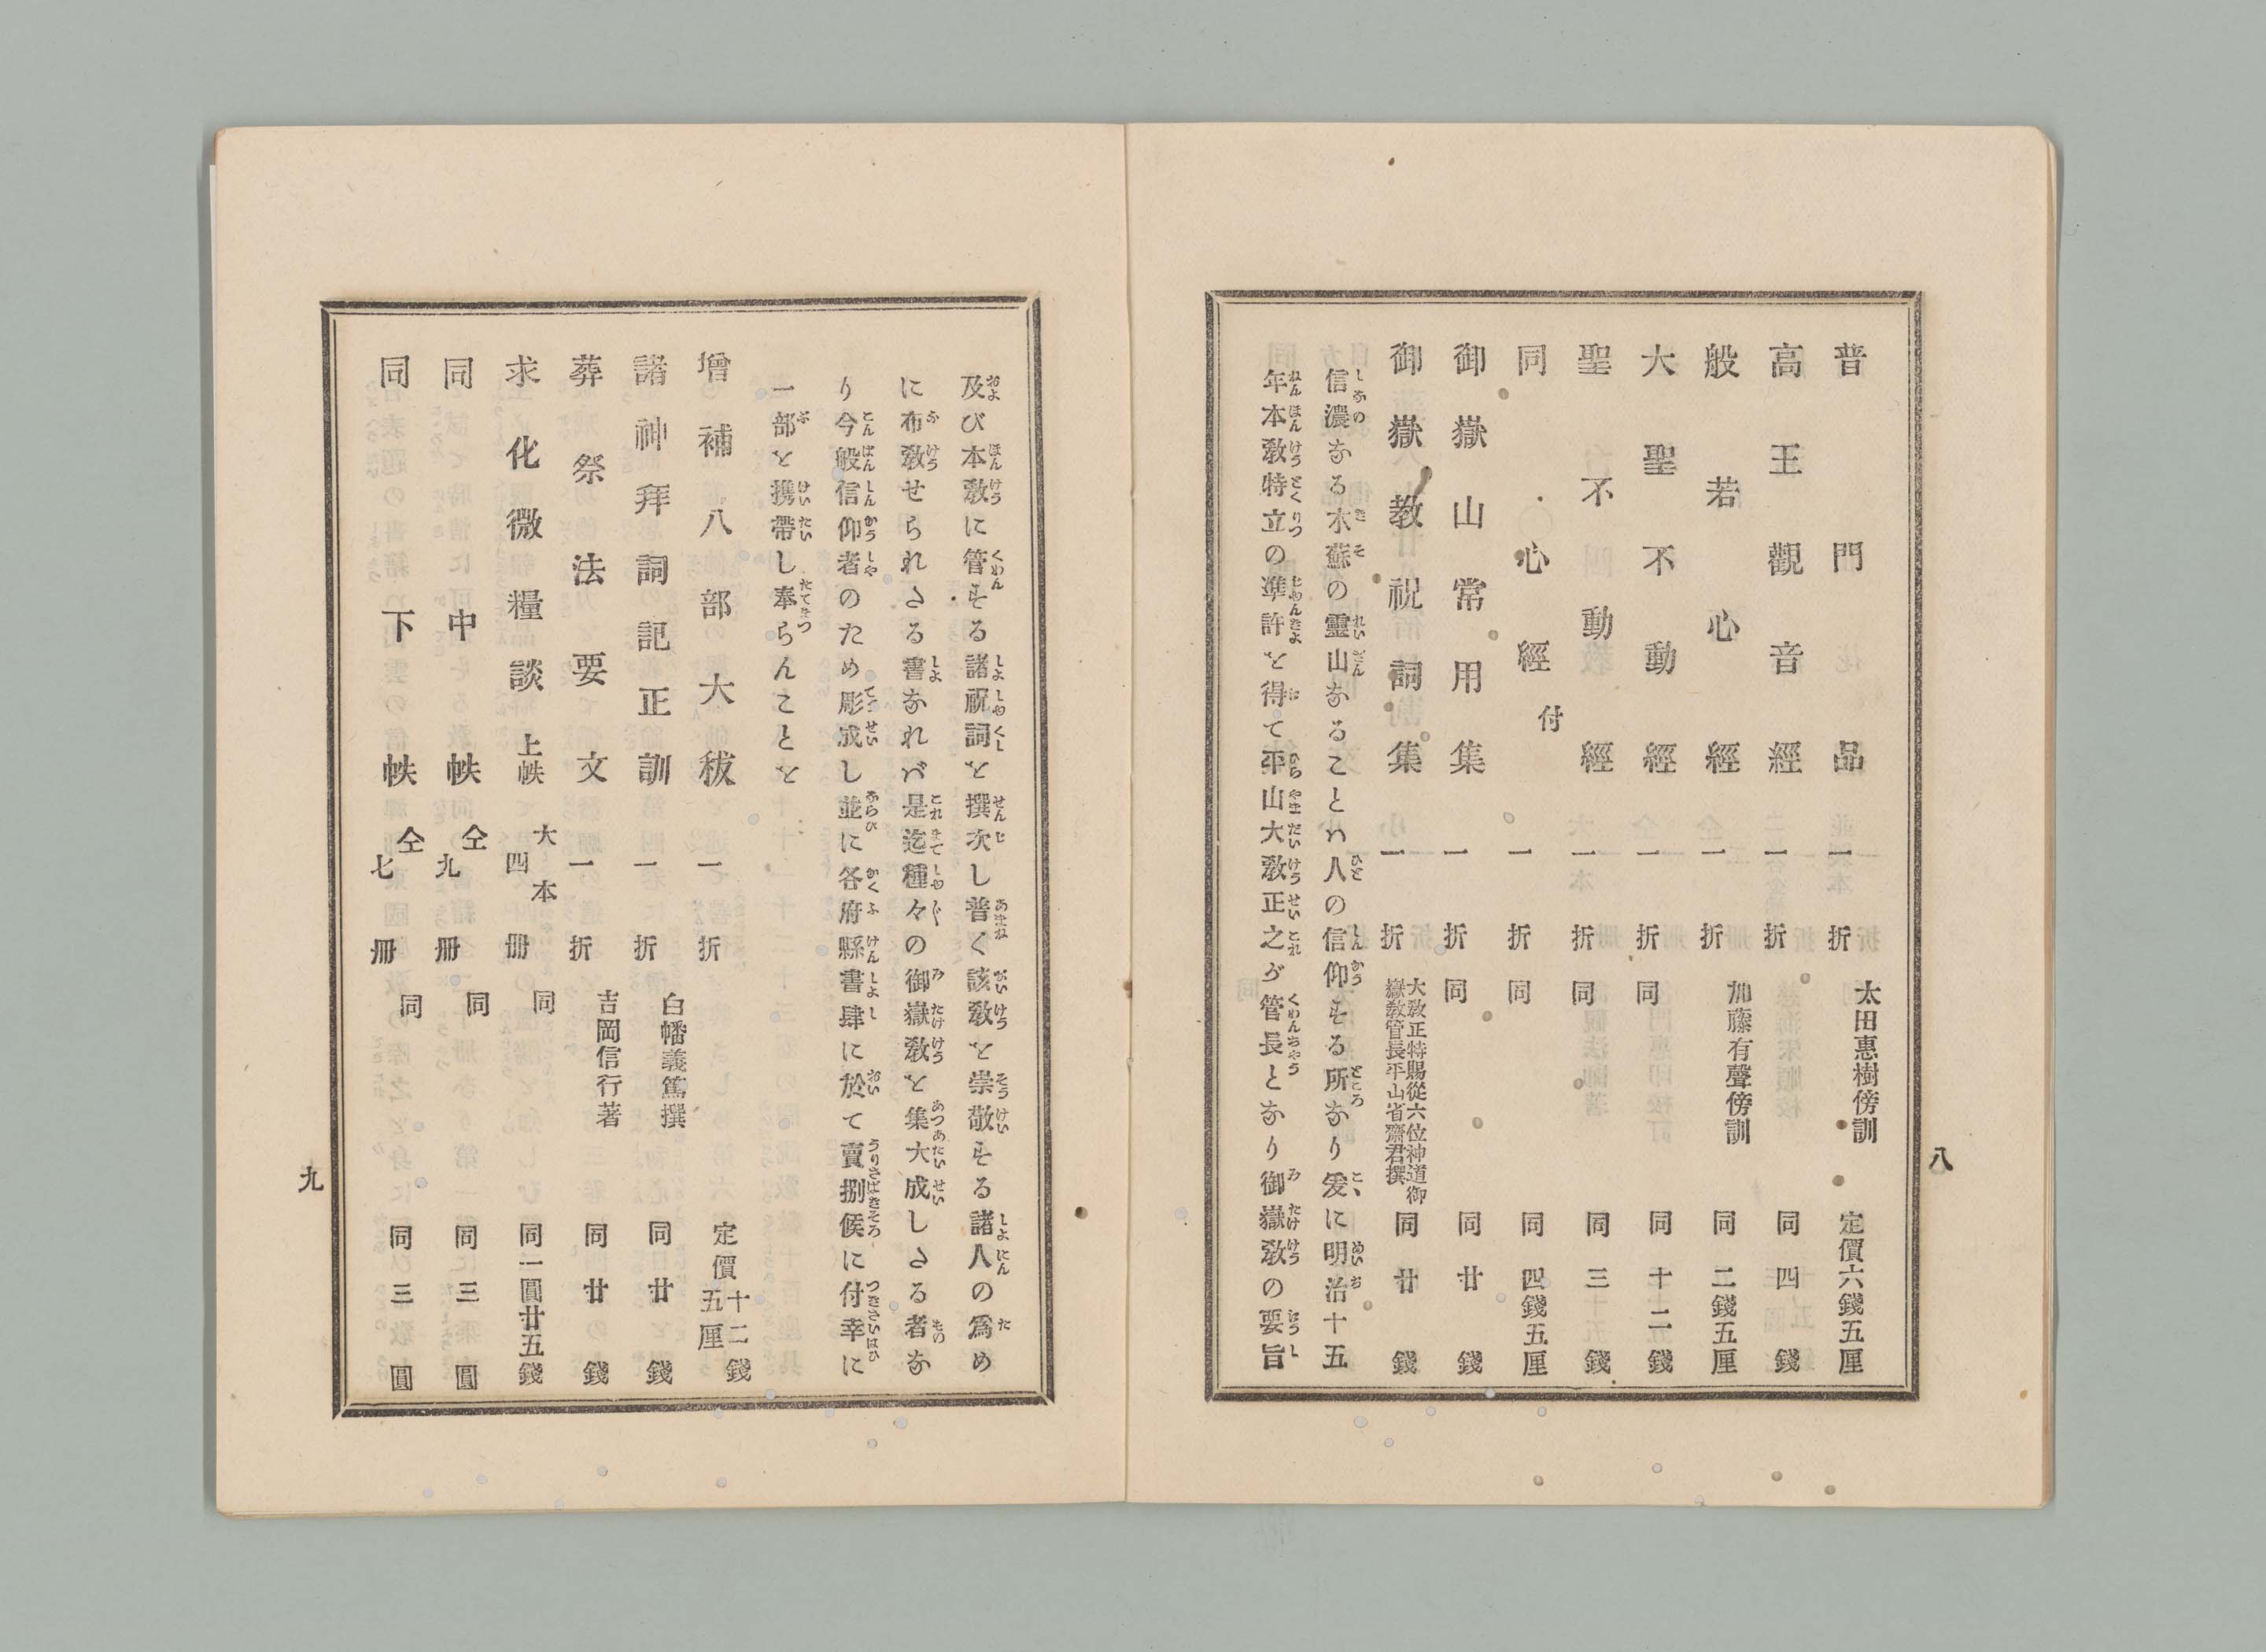 普門品 一折 太田惠樹傍訓 定價六錢五厘
高王觀音經 一折 同四錢
般若心經 一折 加藤有聲傍訓 同二錢五厘
大聖不動經 一折 同 同十二錢
聖不動經 一折 同 同三錢
同 心經付 一折 同 同四錢五厘
御嶽山常用集 一折 同 同廿錢
御嶽教祝詞集 一折 大敎正特賜從六位神道御嶽敎管長平山省齋君撰 同廿錢
信濃なる木蘇の靈山なることハ人の信仰する所なり爰に明治十五
年本敎特立の準許を得て平山大敎正之が管長となり御嶽敎の要旨
八
及び本敎に管する諸祝詞を撰次し普く該敎を崇敬する諸人の爲め
に布敎せられさる書なれバ是迄種々の御嶽敎を集大成しさる者な
り今般信仰者のため彫成し並に各府縣書肆に於て賣捌候に付幸に
一部を携帶し奉らんことを
增補八部大祓 一折 定價十二錢五厘
諸神拜詞記正訓 一折 白幡義篤撰 同廿錢
葬祭法要文 一折 吉岡信行著 同廿錢
求化微糧談 上帙 大本四冊 同 同一圓廿五錢
同 中帙 仝九冊 同 同三圓
同 下帙 仝七冊 同 同三圓
九